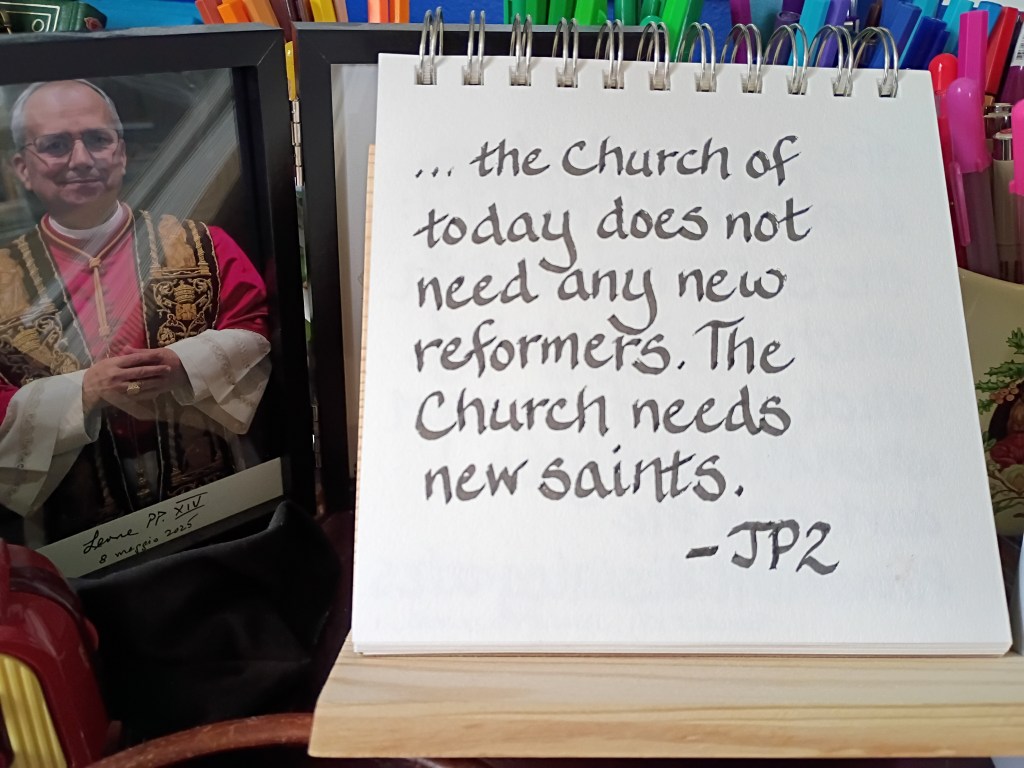 ... the Church of
today does not
need any new
reformers. The
Church needs
new saints.
- JP2
Leone PP. XIV
8 maggio 2025